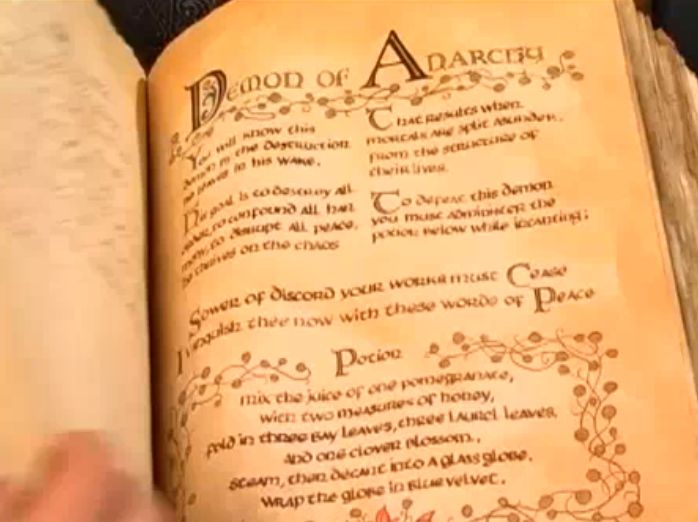 Demon of Anarchy
You will know this
demon in the destruction
he leaves in his wake.
His goal is to destroy all
order, to confound all har
mony, to disrupt all peace.
he thrives on the chaos
That results when
mortals are split asunder.
from the structure of
their lives.
To defeat this demon
you must administer the
potion below while incanting:
Sower of discord your works must Cease
I vanquish thee now with these words of Peace
Potion
mix the juice of one pomegranate,
with two measures of honey,
fold in three bay leaves, three laurel leaves
and one clover blossom.
Steam, then decant into a glass globe.
wrap the globe in blue velvet.